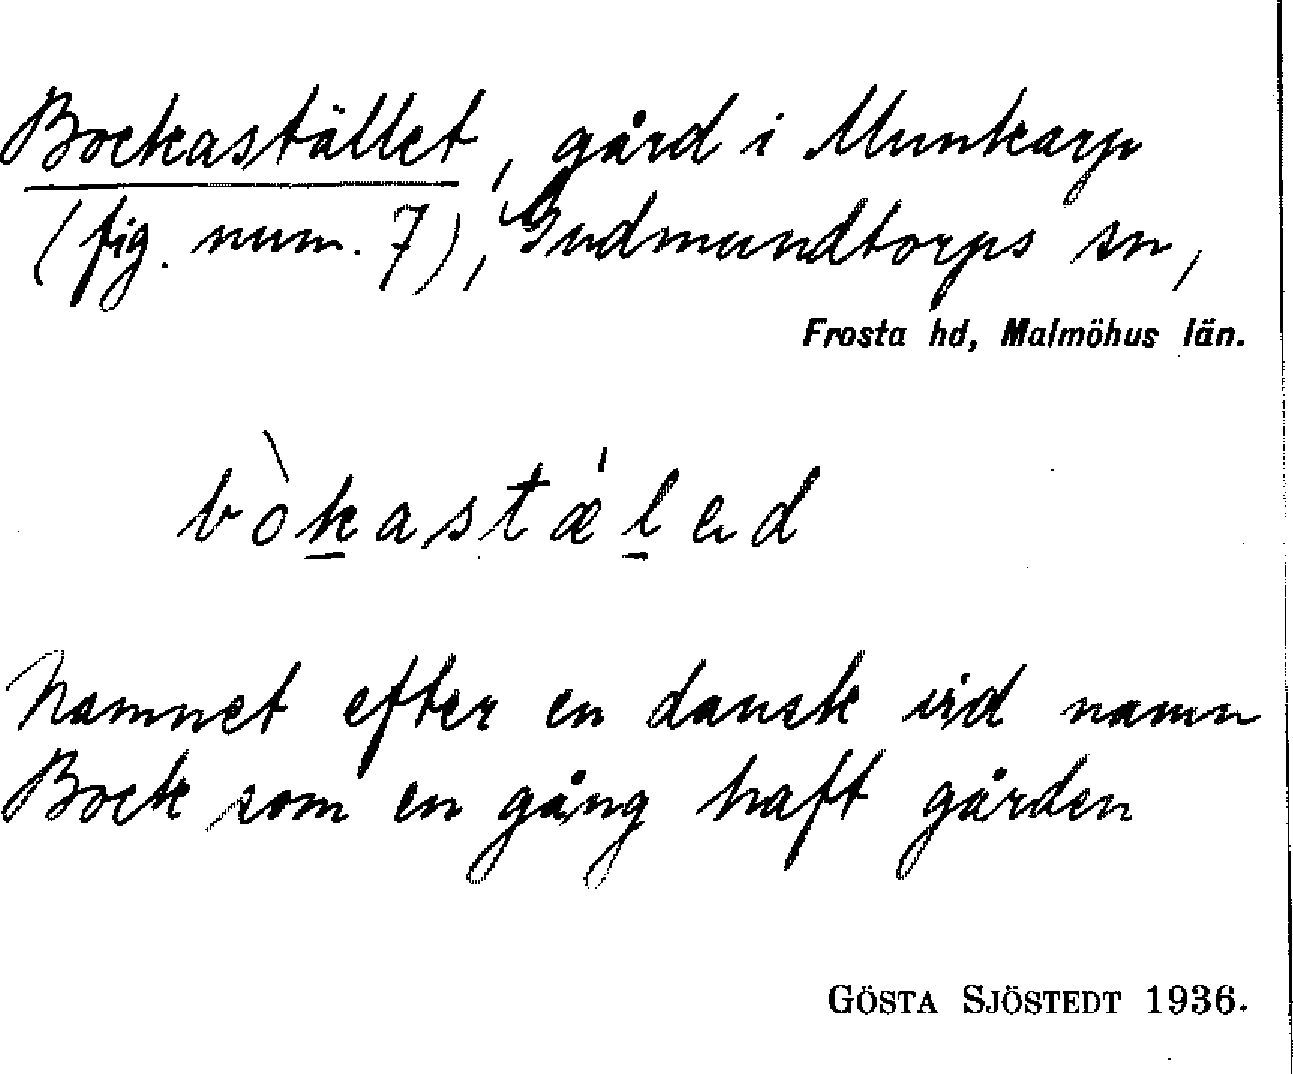 Bockastället, gård i Munkarp
(fig. num. 7), Gudmundtorps sn,
Frosta hd, Malmöhus län.
bòkastǽled
Namnet efter en dansk vid namn
Bock som en gång haft gården
GÖSTA SJÖSTEDT 1936.